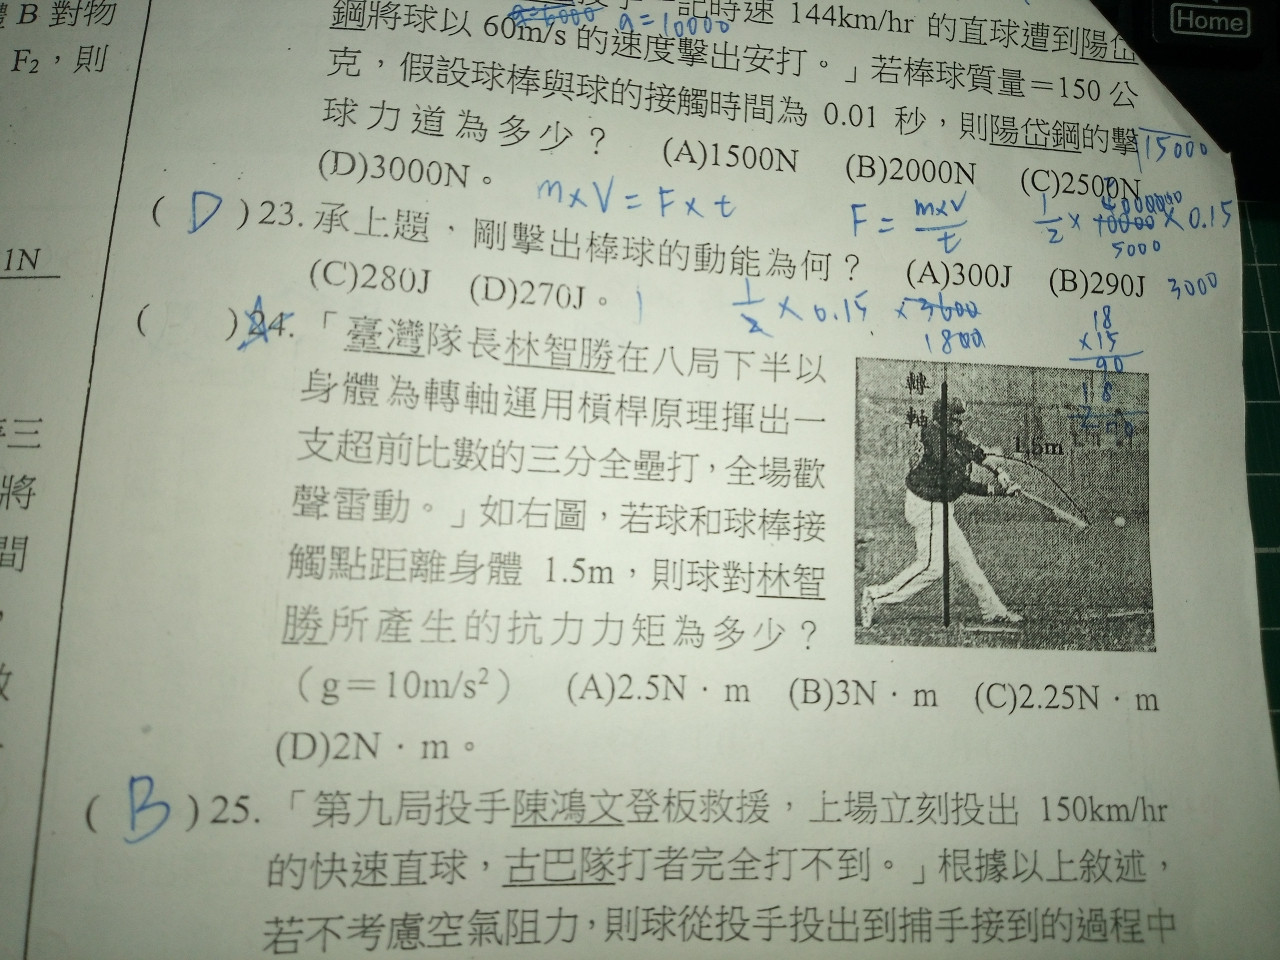 Home
B 對物
F₂，則
1N
將
間
記時速 144km/hr 的直球遭到陽岱
a=10000
鋼將球以 60m/s 的速度擊出安打。」若棒球質量＝150 公
克，假設球棒與球的接觸時間為 0.01 秒，則陽岱鋼的擊
球力道為多少？ (A)1500N (B)2000N (C)2500N
15000
(D)3000N。
m×V = F×t
F = m×V / t
1/2 × 10000 × 0.15
5000
( D ) 23. 承上題，剛擊出棒球的動能為何？ (A)300J (B)290J
3000
(C)280J (D)270J。
1/2 × 0.15 × 3600
1800
18
×15
90
18
( ) 24. 「臺灣隊長林智勝在八局下半以
身體為轉軸運用槓桿原理揮出一
支超前比數的三分全壘打，全場歡
聲雷動。」如右圖，若球和球棒接
觸點距離身體 1.5m，則球對林智
勝所產生的抗力力矩為多少？
（g＝10m/s²） (A)2.5N．m (B)3N．m (C)2.25N．m
(D)2N．m。
轉
軸
1.5m
( B ) 25. 「第九局投手陳鴻文登板救援，上場立刻投出 150km/hr
的快速直球，古巴隊打者完全打不到。」根據以上敘述，
若不考慮空氣阻力，則球從投手投出到捕手接到的過程中